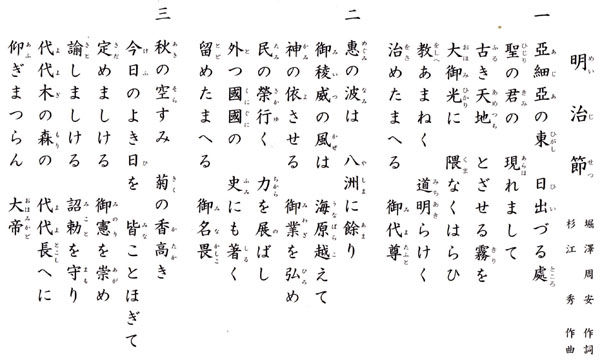 明治節
堀澤周安 作詞
杉江 秀 作曲
一
亞細亞の東 日出づる處
聖の君の 現れまして
古き天地 とざせる霧を
大御光に 隈なくはらひ
教あまねく 道明らけく
治めたまへる 御代尊
二
惠の波は 八洲に餘り
御稜威の風は 海原越えて
神の依させる 御業を弘め
民の榮行く 力を展ばし
外つ國國の 史にも著く
留めたまへる 御名畏
三
秋の空すみ 菊の香高き
今日のよき日を 皆ことほぎて
定めましける 御憲を崇め
諭しましける 詔勅を守り
代代木の森の 代代長へに
仰ぎまつらん 大帝